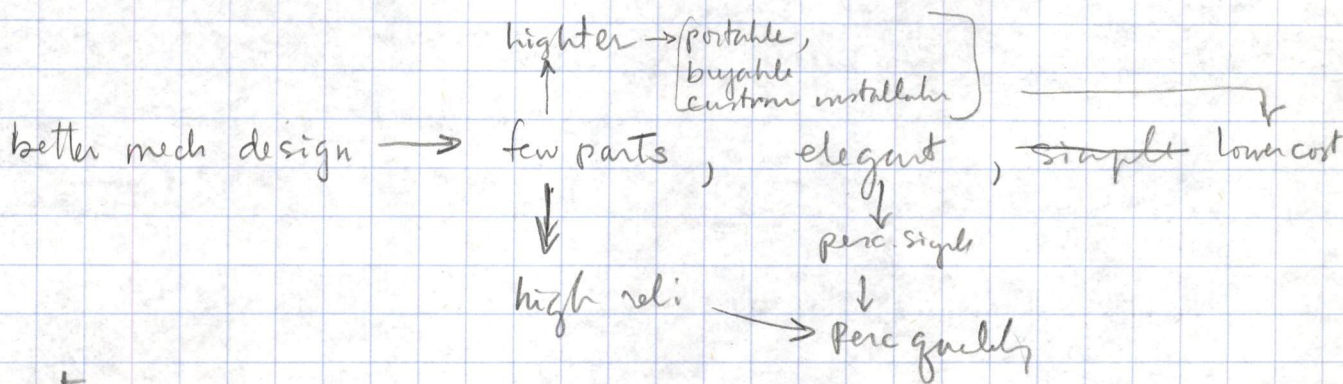 lighter → portable,
buyable
custom installable
better mech design → few parts, elegant, simple lower cost
perc. simple
high reli
Perc quality